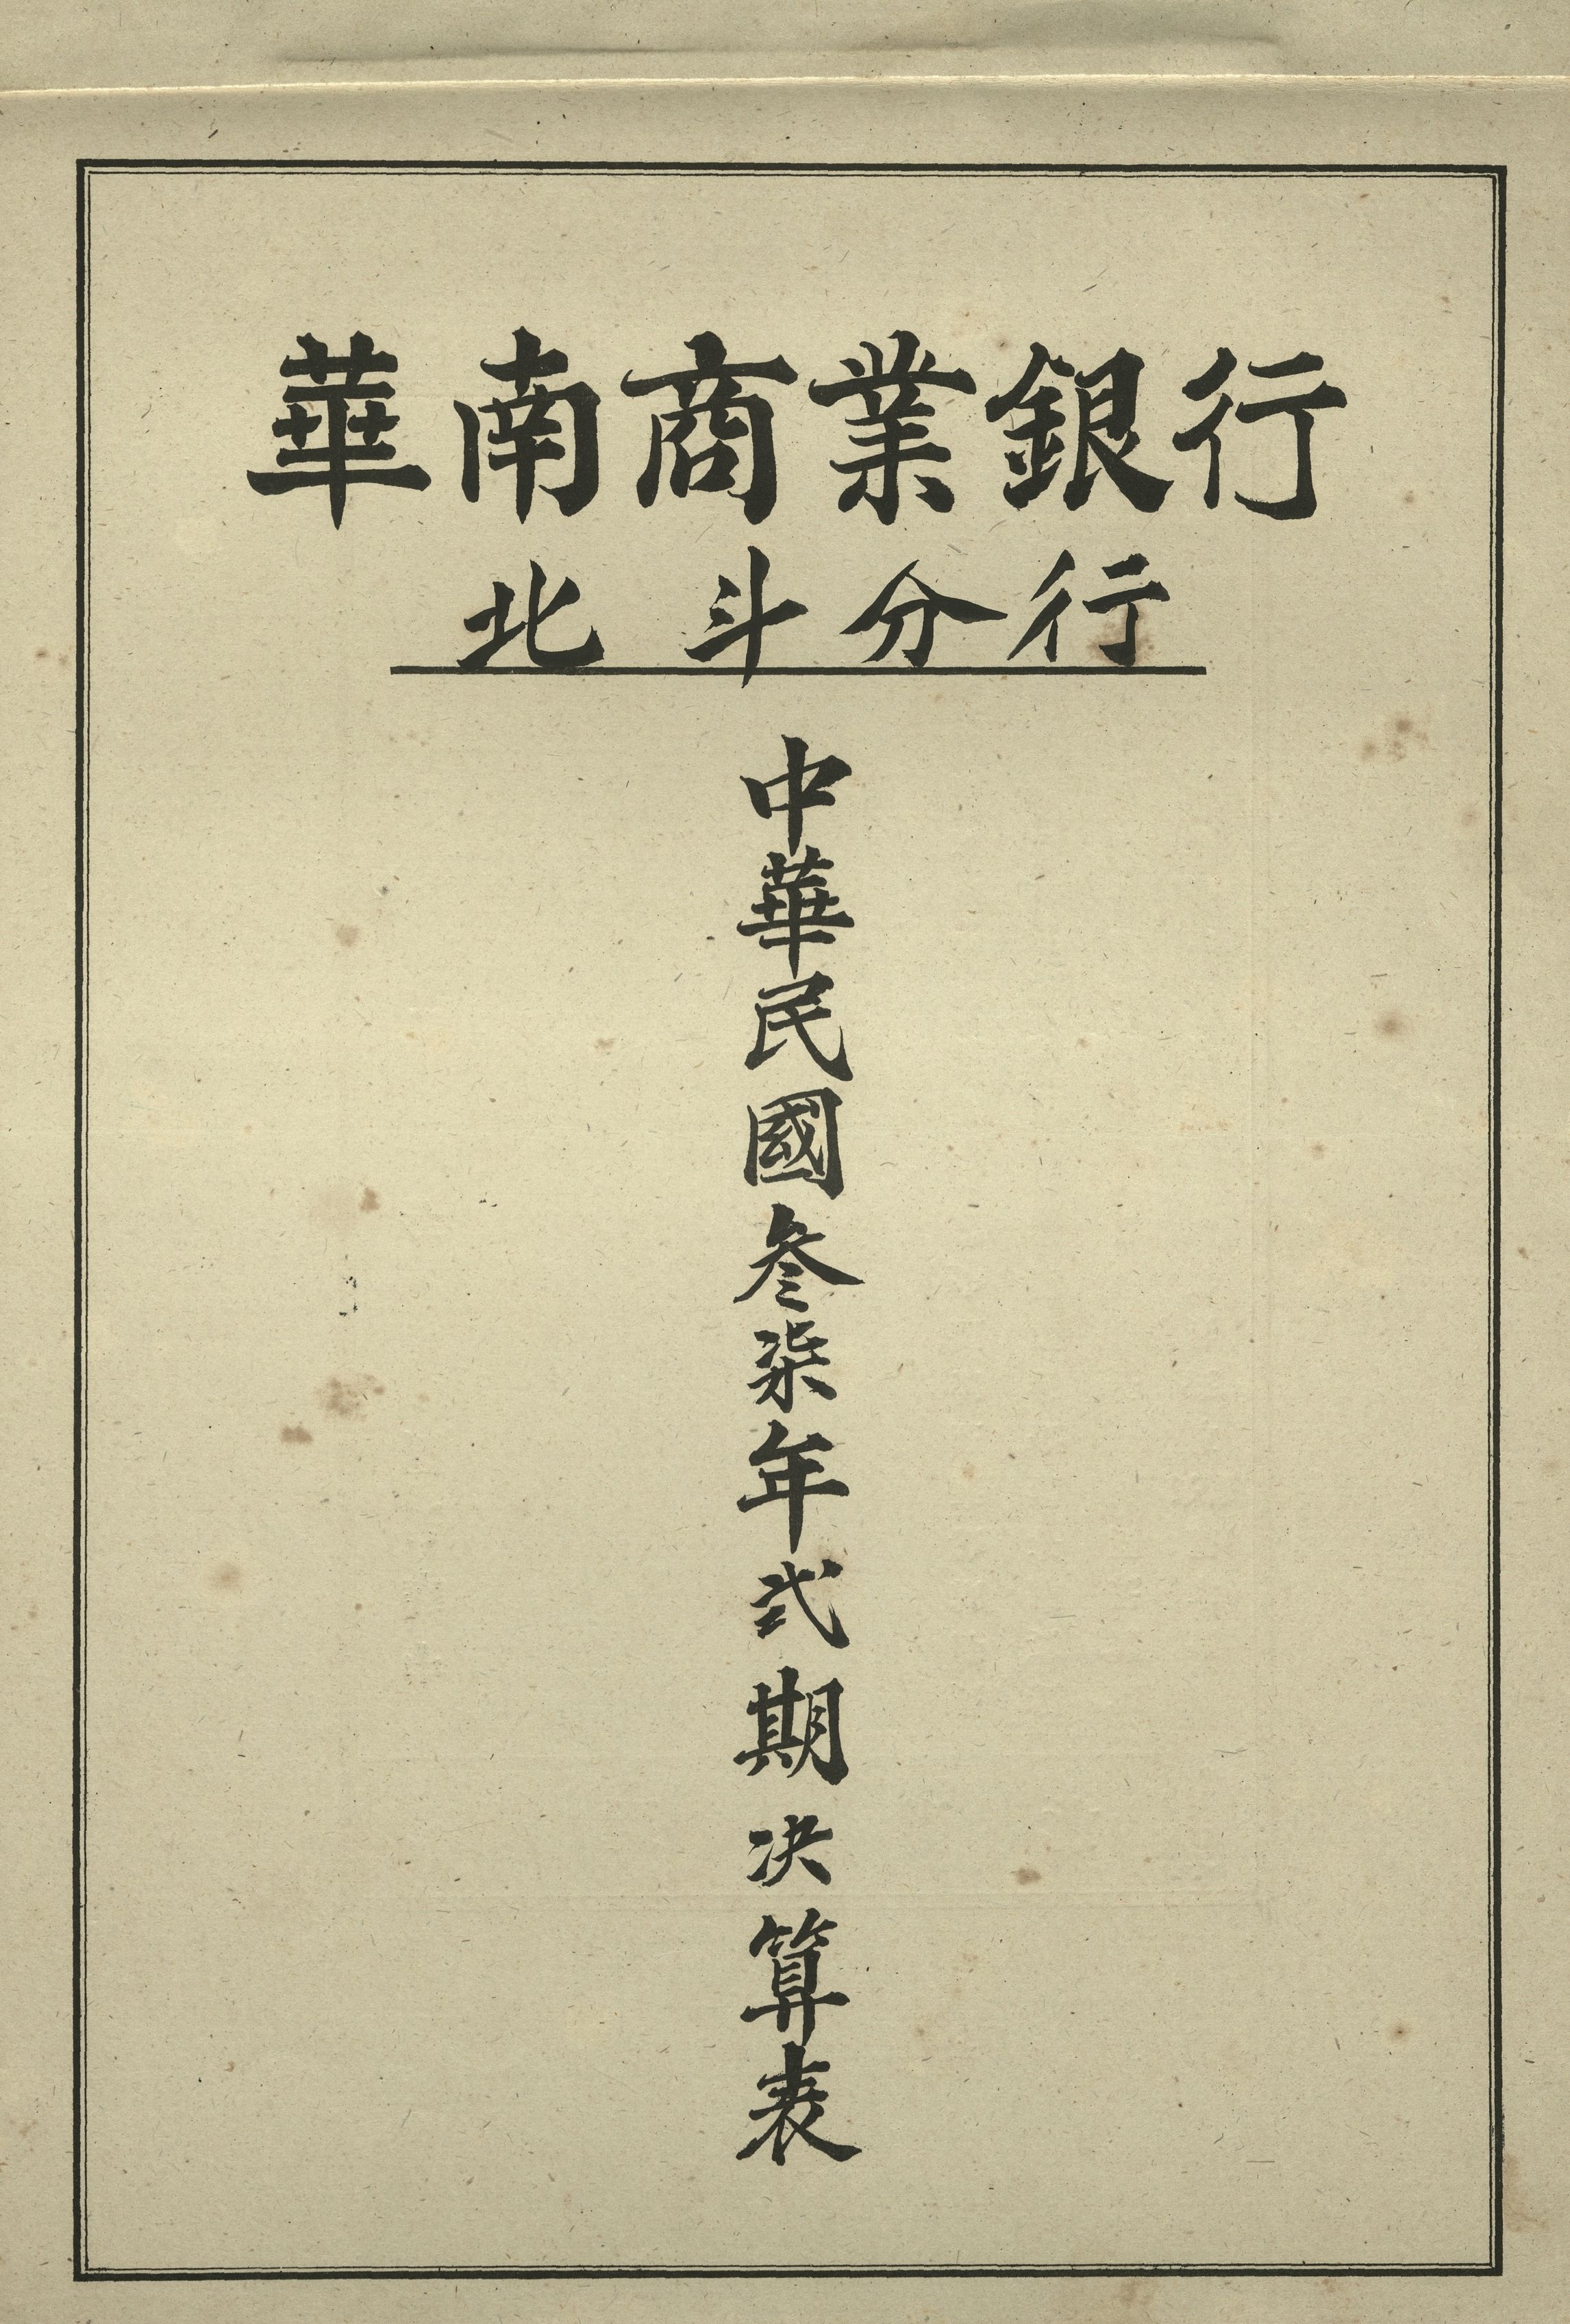 華南商業銀行
北斗分行
中華民國叁柒年弍期決算表